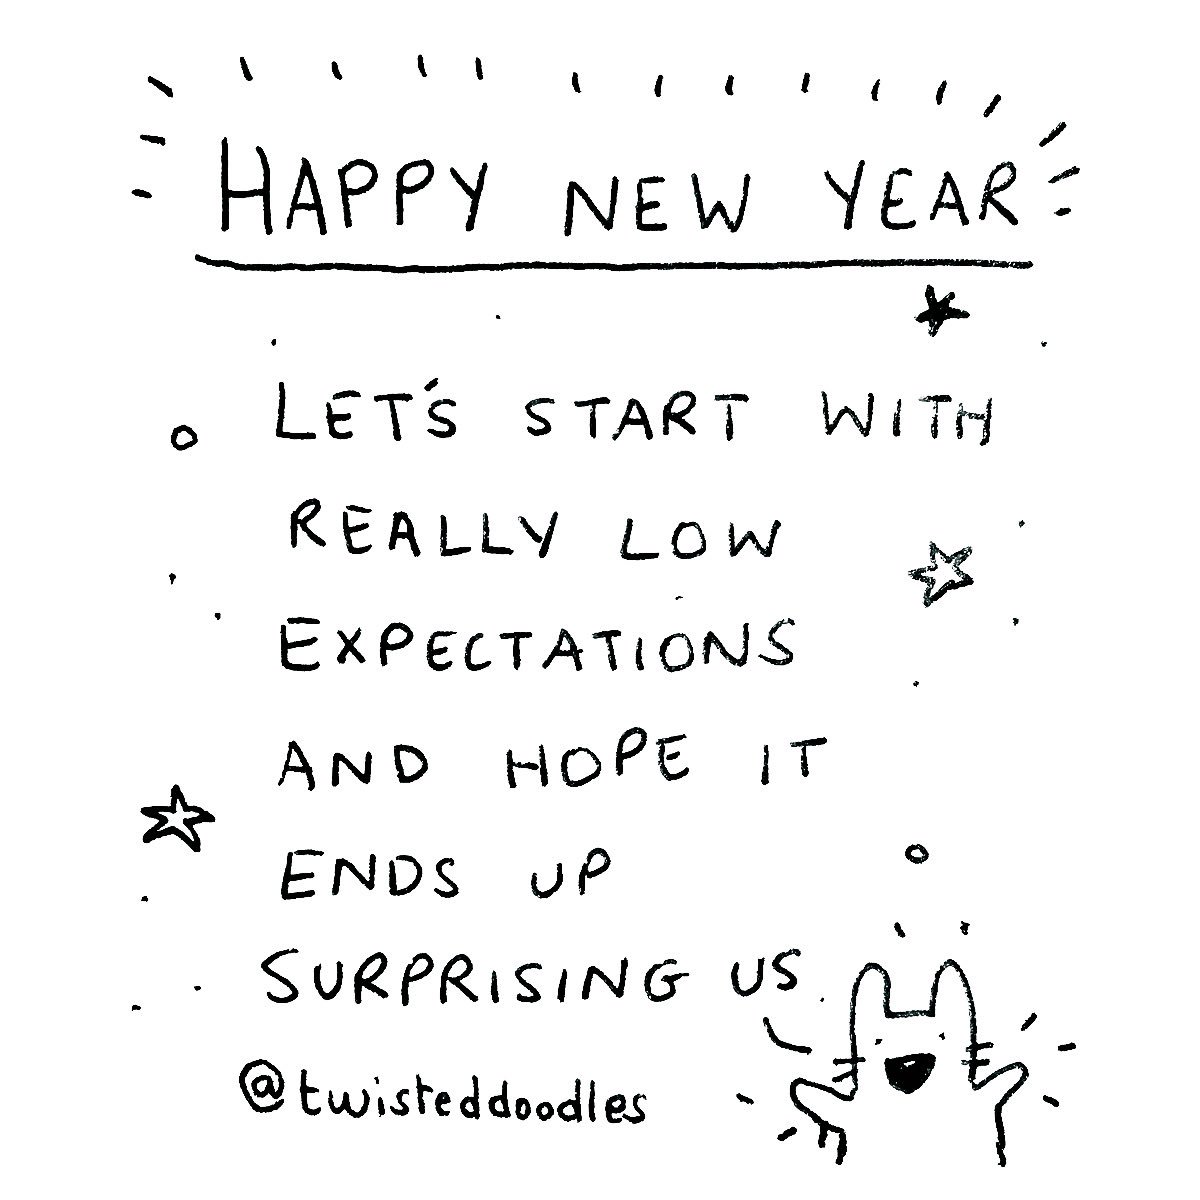 HAPPY NEW YEAR
LET'S START WITH
REALLY LOW
EXPECTATIONS
AND HOPE IT
ENDS UP
SURPRISING US
@twisteddoodles